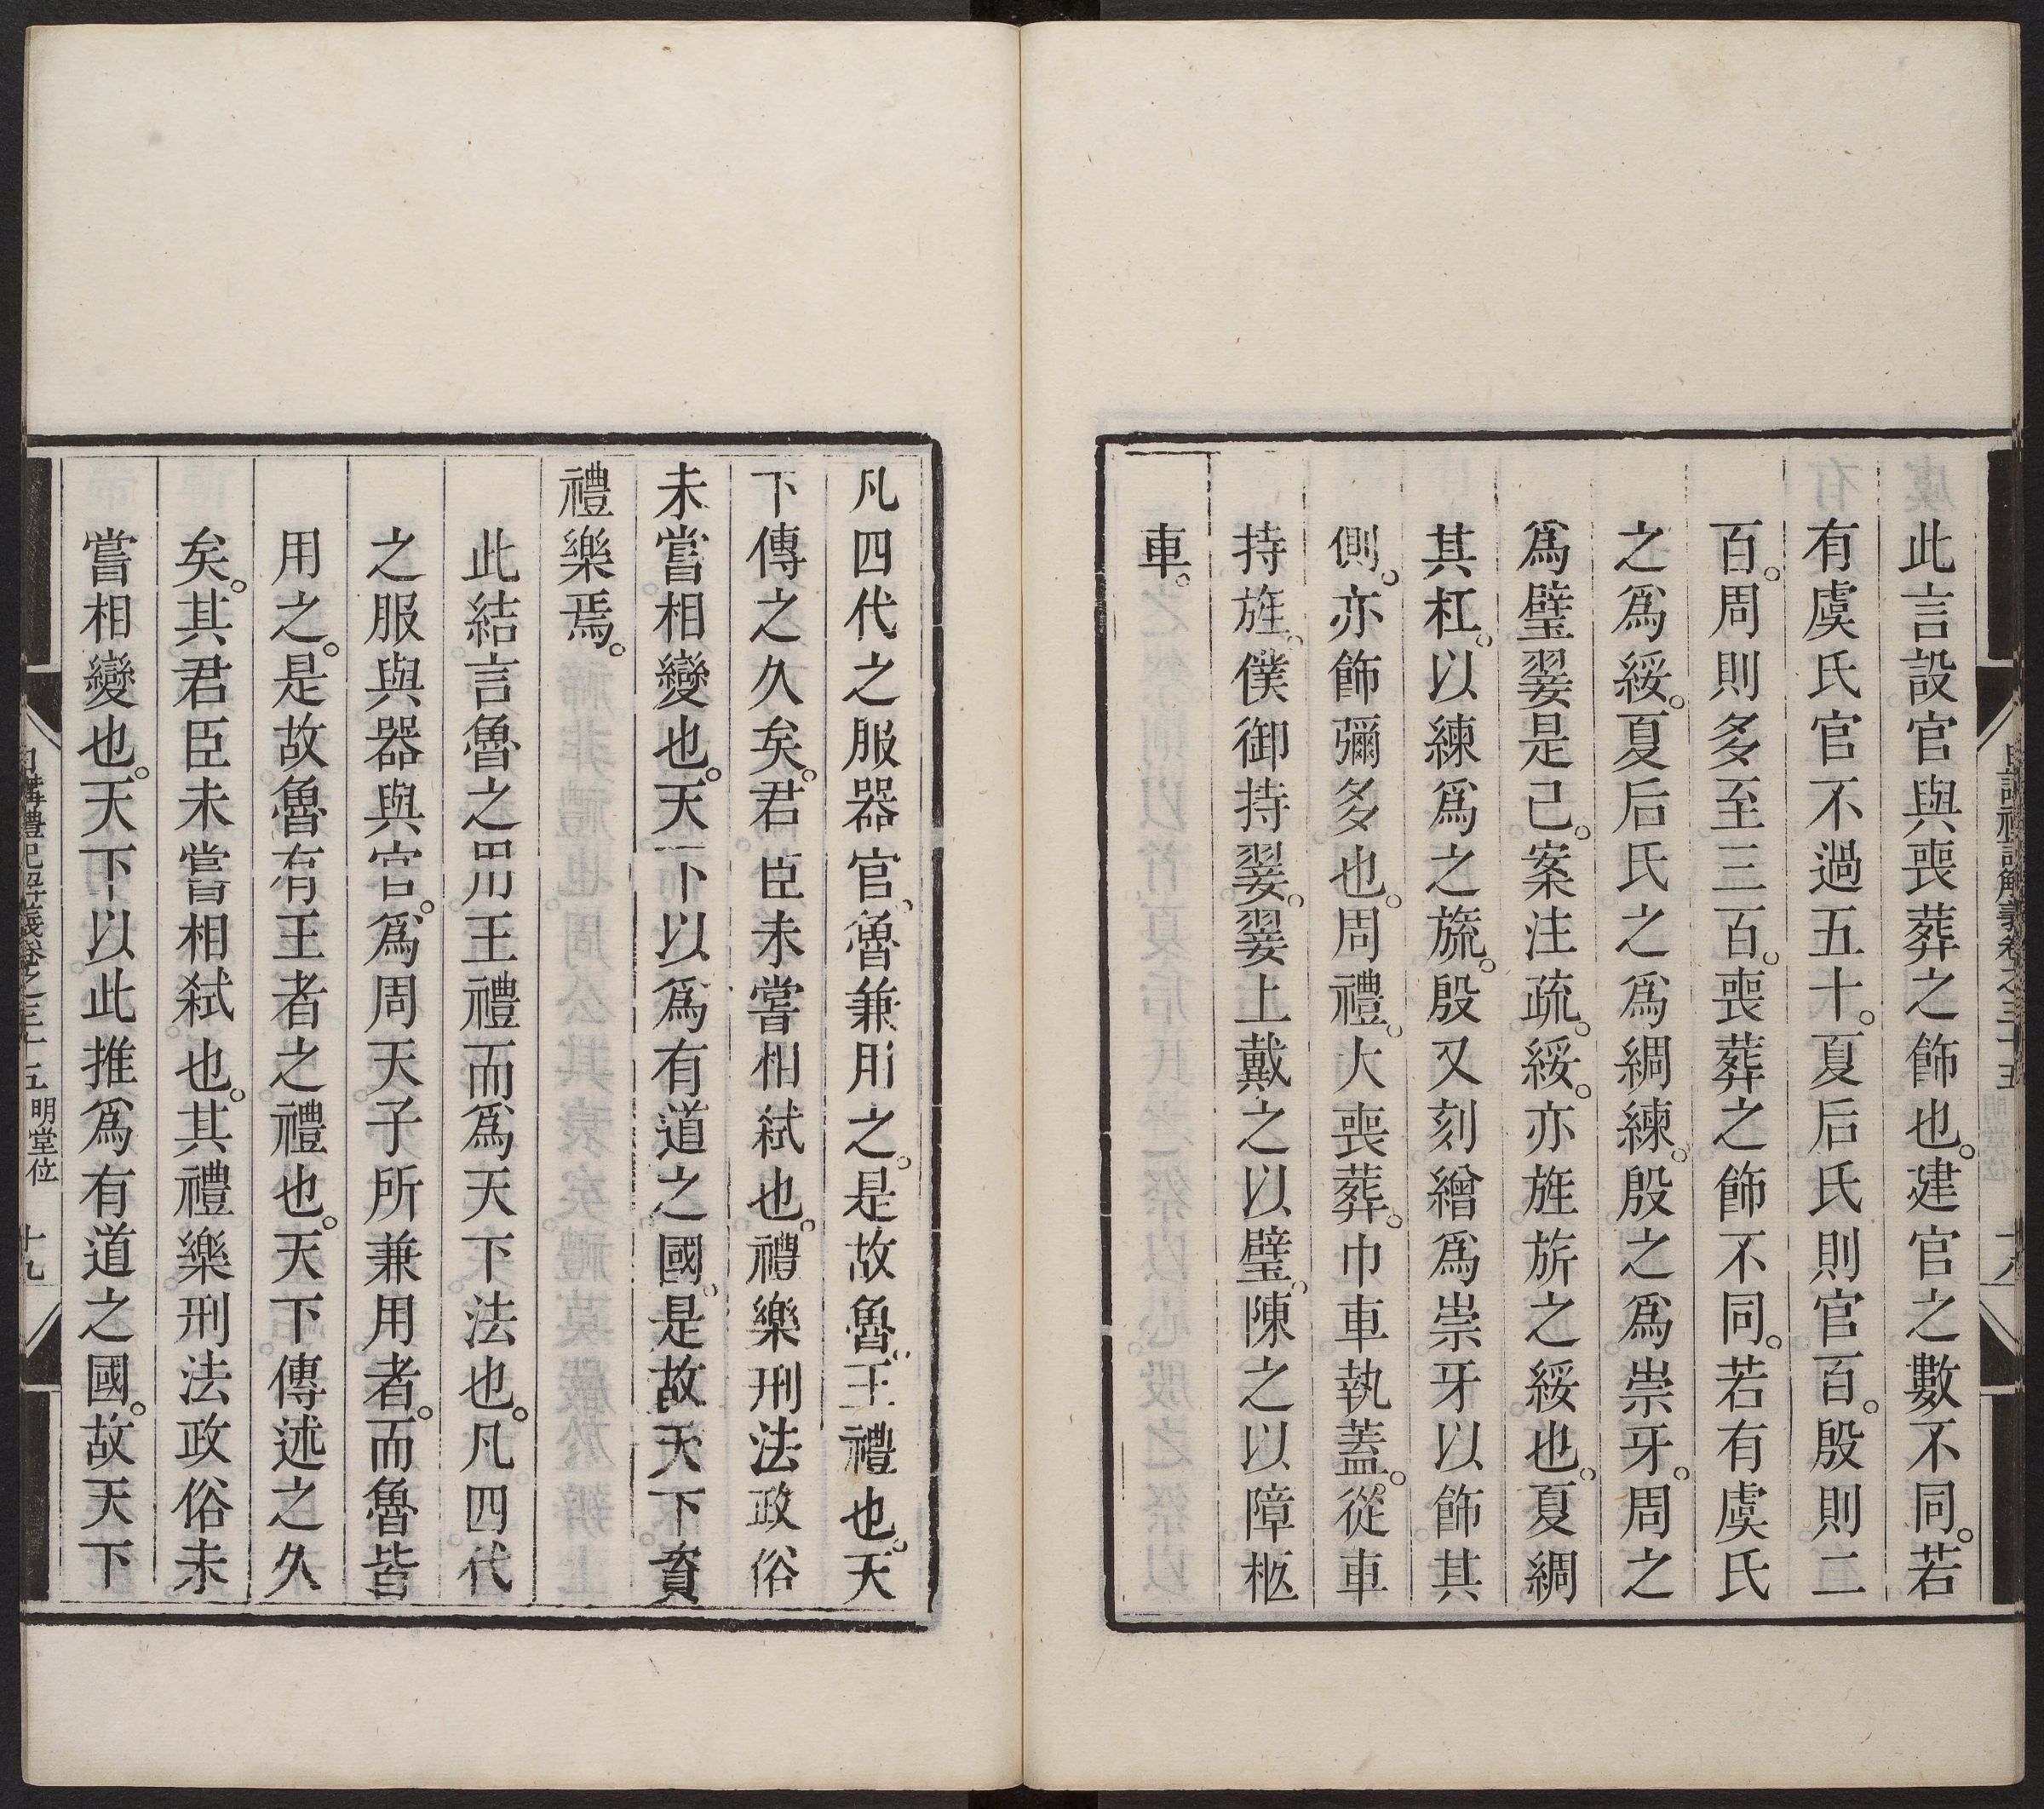 此言設官與喪葬之飾也。建官之數不同。若
有虞氏官不過五十。夏后氏則官百。殷則二
百。周則多至三百。喪葬之飾不同。若有虞氏
之爲綏。夏后氏之爲綢練。殷之爲崇牙。周之
爲璧翣是已。案注疏。綏。亦旌旂之綏也。夏綢
其杠。以練爲之旒。殷又刻繒爲崇牙以飾其
側。亦飾彌多也。周禮。大喪葬。巾車執蓋。從車
持旌。僕御持翣。翣上戴之以璧。陳之以障柩
車。
凡四代之服器官。魯兼用之。是故魯。王禮也。天
下傳之久矣。君臣未嘗相弑也。禮樂刑法政俗
未嘗相變也。天下以爲有道之國。是故天下資
禮樂焉。
此結言魯之用王禮而爲天下法也。凡四代
之服與器與官。爲周天子所兼用者。而魯皆
用之。是故魯有王者之禮也。天下傳述之久
矣。其君臣未嘗相弑也。其禮樂刑法政俗未
嘗相變也。天下以此推爲有道之國。故天下
日講禮記解義卷之三十五 明堂位 十九